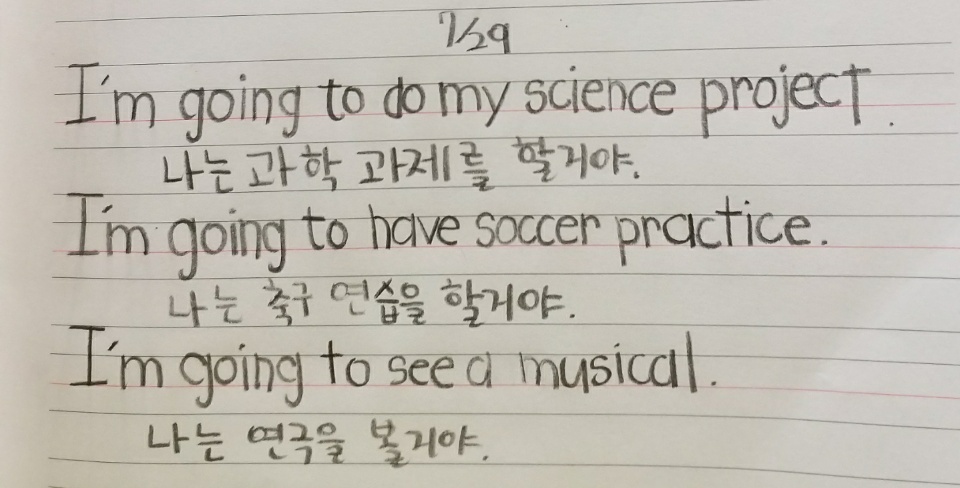 7/29
I'm going to do my science project.
나는 과학 과제를 할거야.
I'm going to have soccer practice.
나는 축구 연습을 할거야.
I'm going to see a musical.
나는 연극을 볼거야.